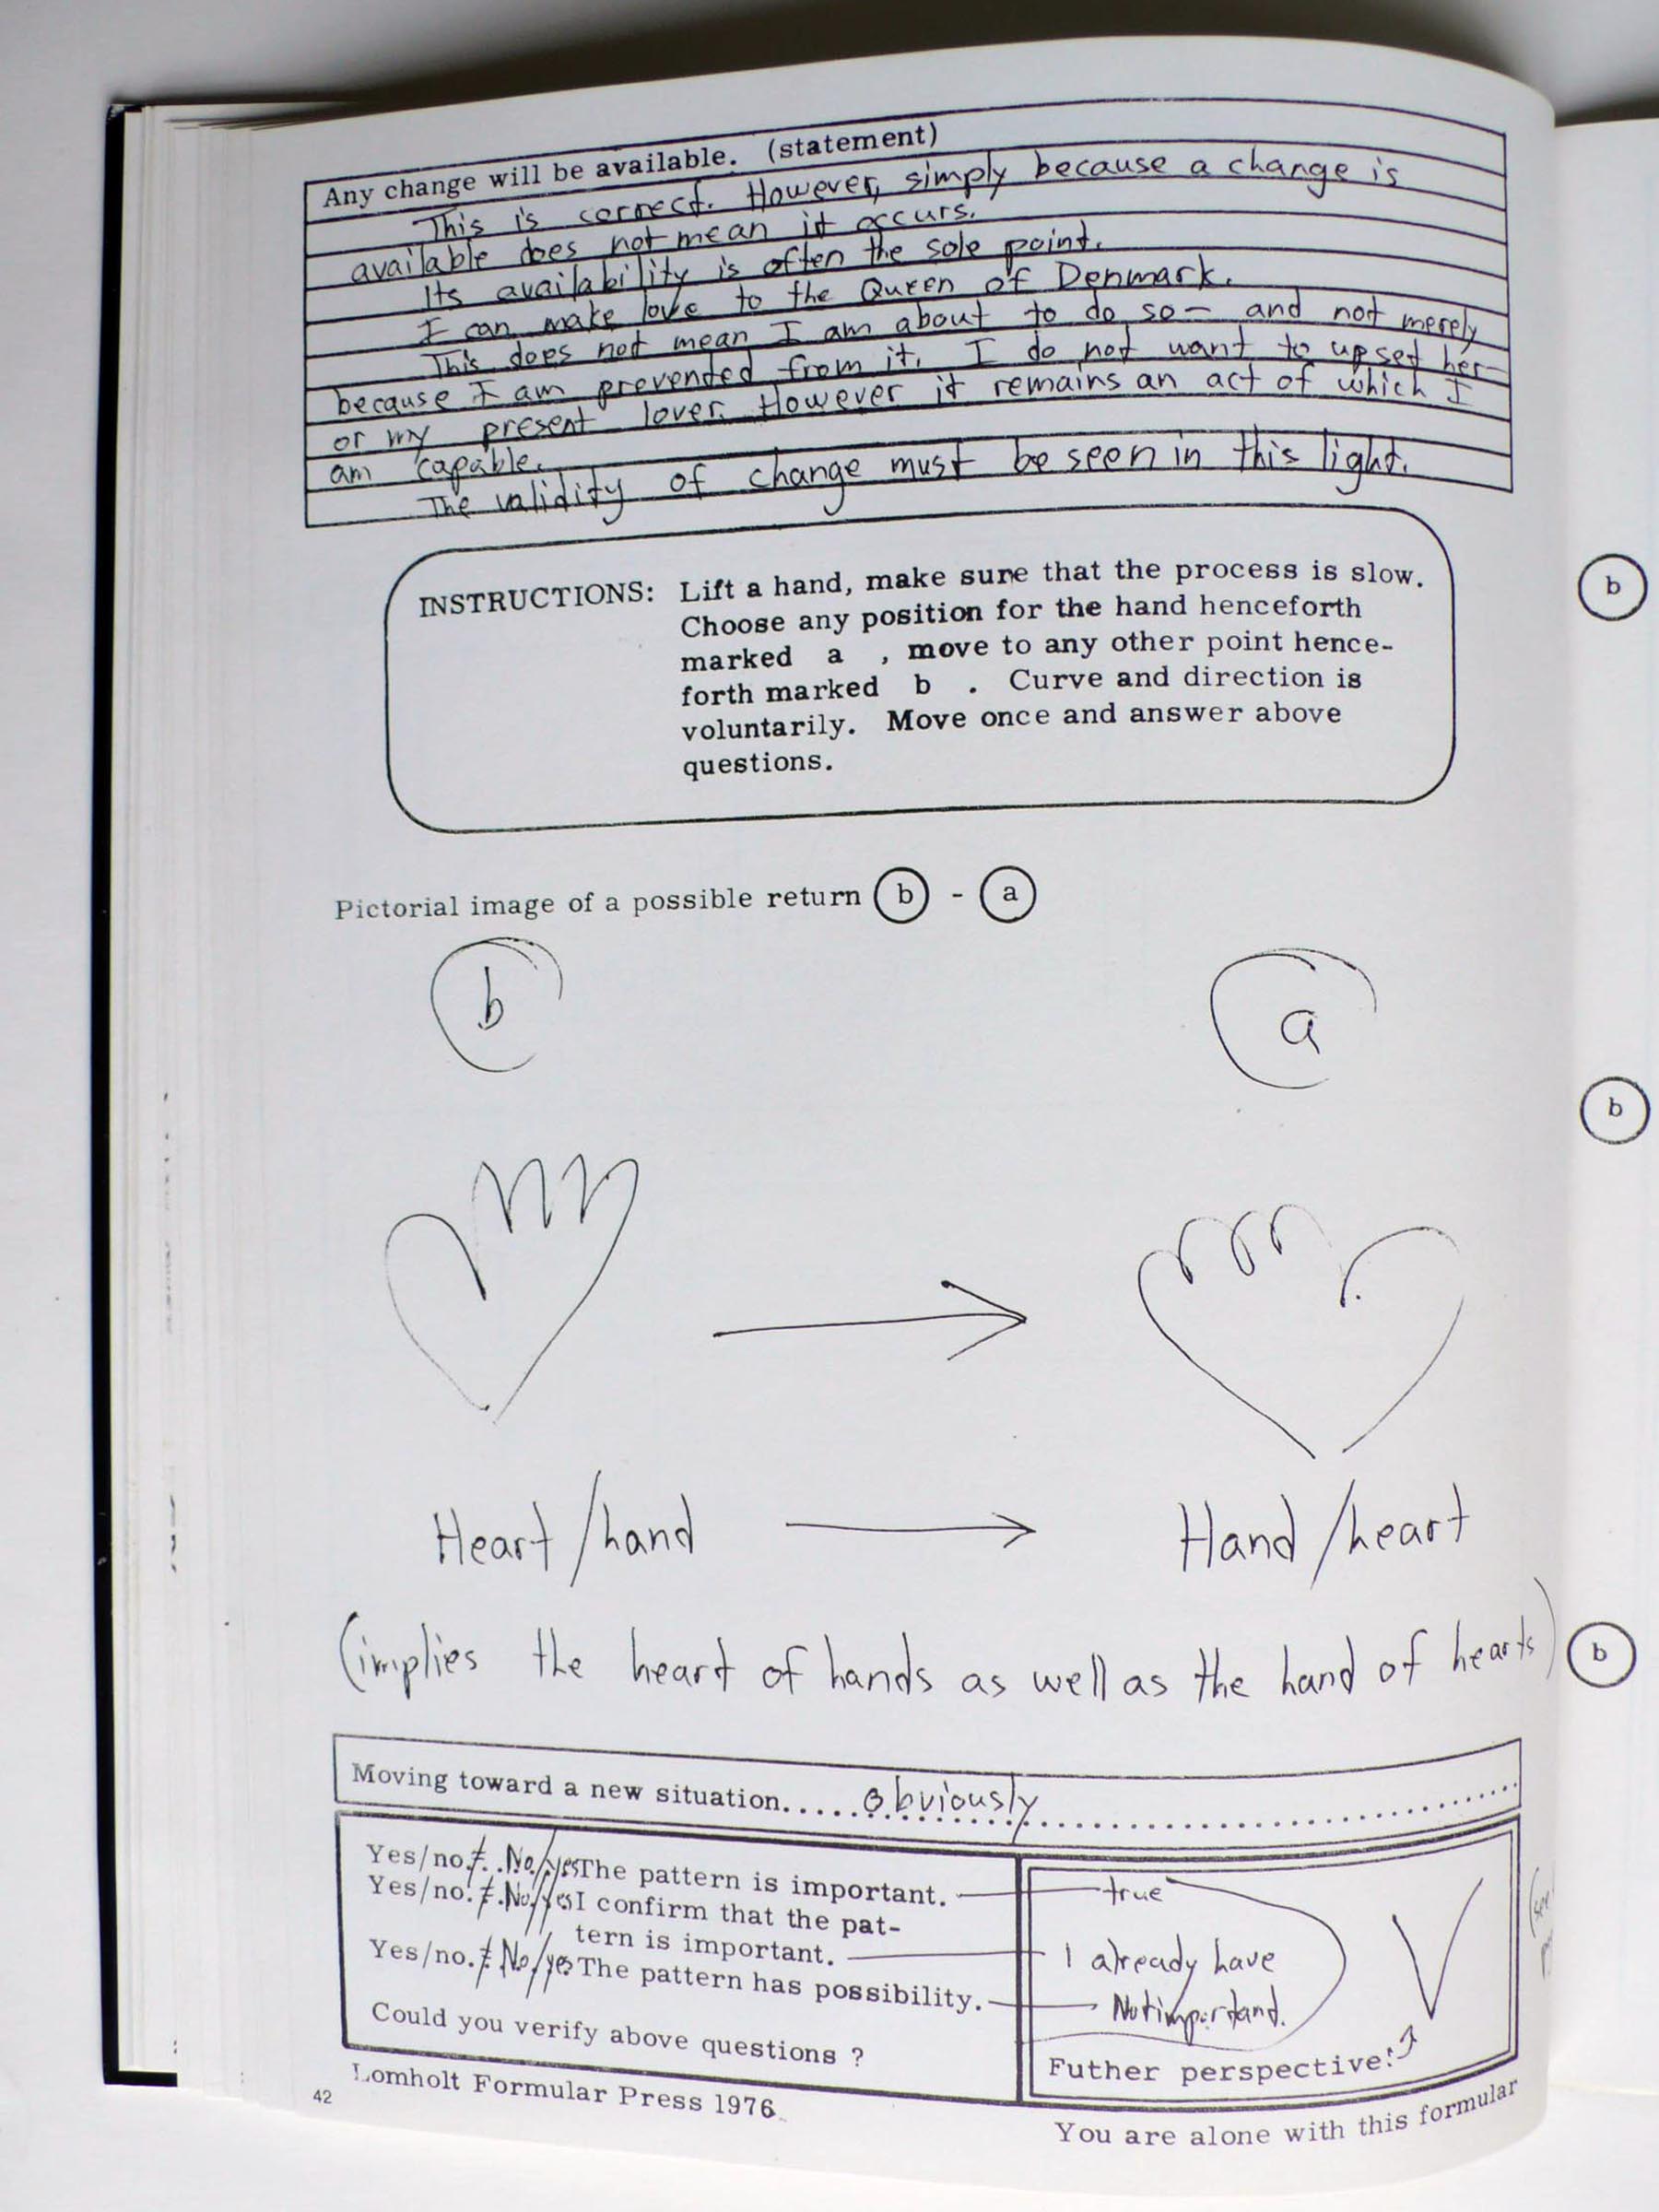 Any change will be available. (statement)
This is correct. However, simply because a change is
available does not mean it occurs.
Its availability is often the sole point.
I can make love to the Queen of Denmark.
This does not mean I am about to do so — and not merely
because I am prevented from it. I do not want to upset her—
or my present lover. However it remains an act of which I
am capable.
The validity of change must be seen in this light.
INSTRUCTIONS: Lift a hand, make sure that the process is slow.
Choose any position for the hand henceforth
marked a , move to any other point hence-
forth marked b . Curve and direction is
voluntarily. Move once and answer above
questions.
Pictorial image of a possible return b - a
b a
Heart/hand → Hand/heart
(implies the heart of hands as well as the hand of hearts)
Moving toward a new situation.....obviously
Yes/no.≠.No/yes The pattern is important. true
Yes/no.≠.No/yes I confirm that the pat-
tern is important. I already have
Yes/no.≠ No/yes The pattern has possibility. Not important.
Could you verify above questions ?
Futher perspective:
42
Lomholt Formular Press 1976
You are alone with this formular
b
b
b